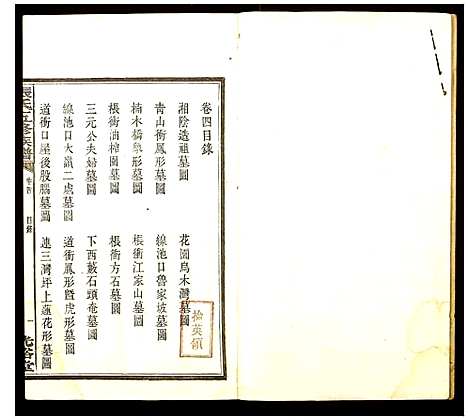 卷四目錄
湘陰造祖墓圖
花園烏木灣墓圖
青山衝鳳形墓圖
線池口魯家坡墓圖
楠木橋象形墓圖
棖衝江家山墓圖
棖衝油榨園墓圖
棖衝方石墓圖
三元公夫婦墓圖
下西藪石頭庵墓圖
線池口大嶺二處墓圖
道衝鳳形暨虎形墓圖
道衝口屋後股腦墓圖
連三灣坪上蓮花形墓圖
張氏五修族譜
卷首
目錄
一
光裕堂